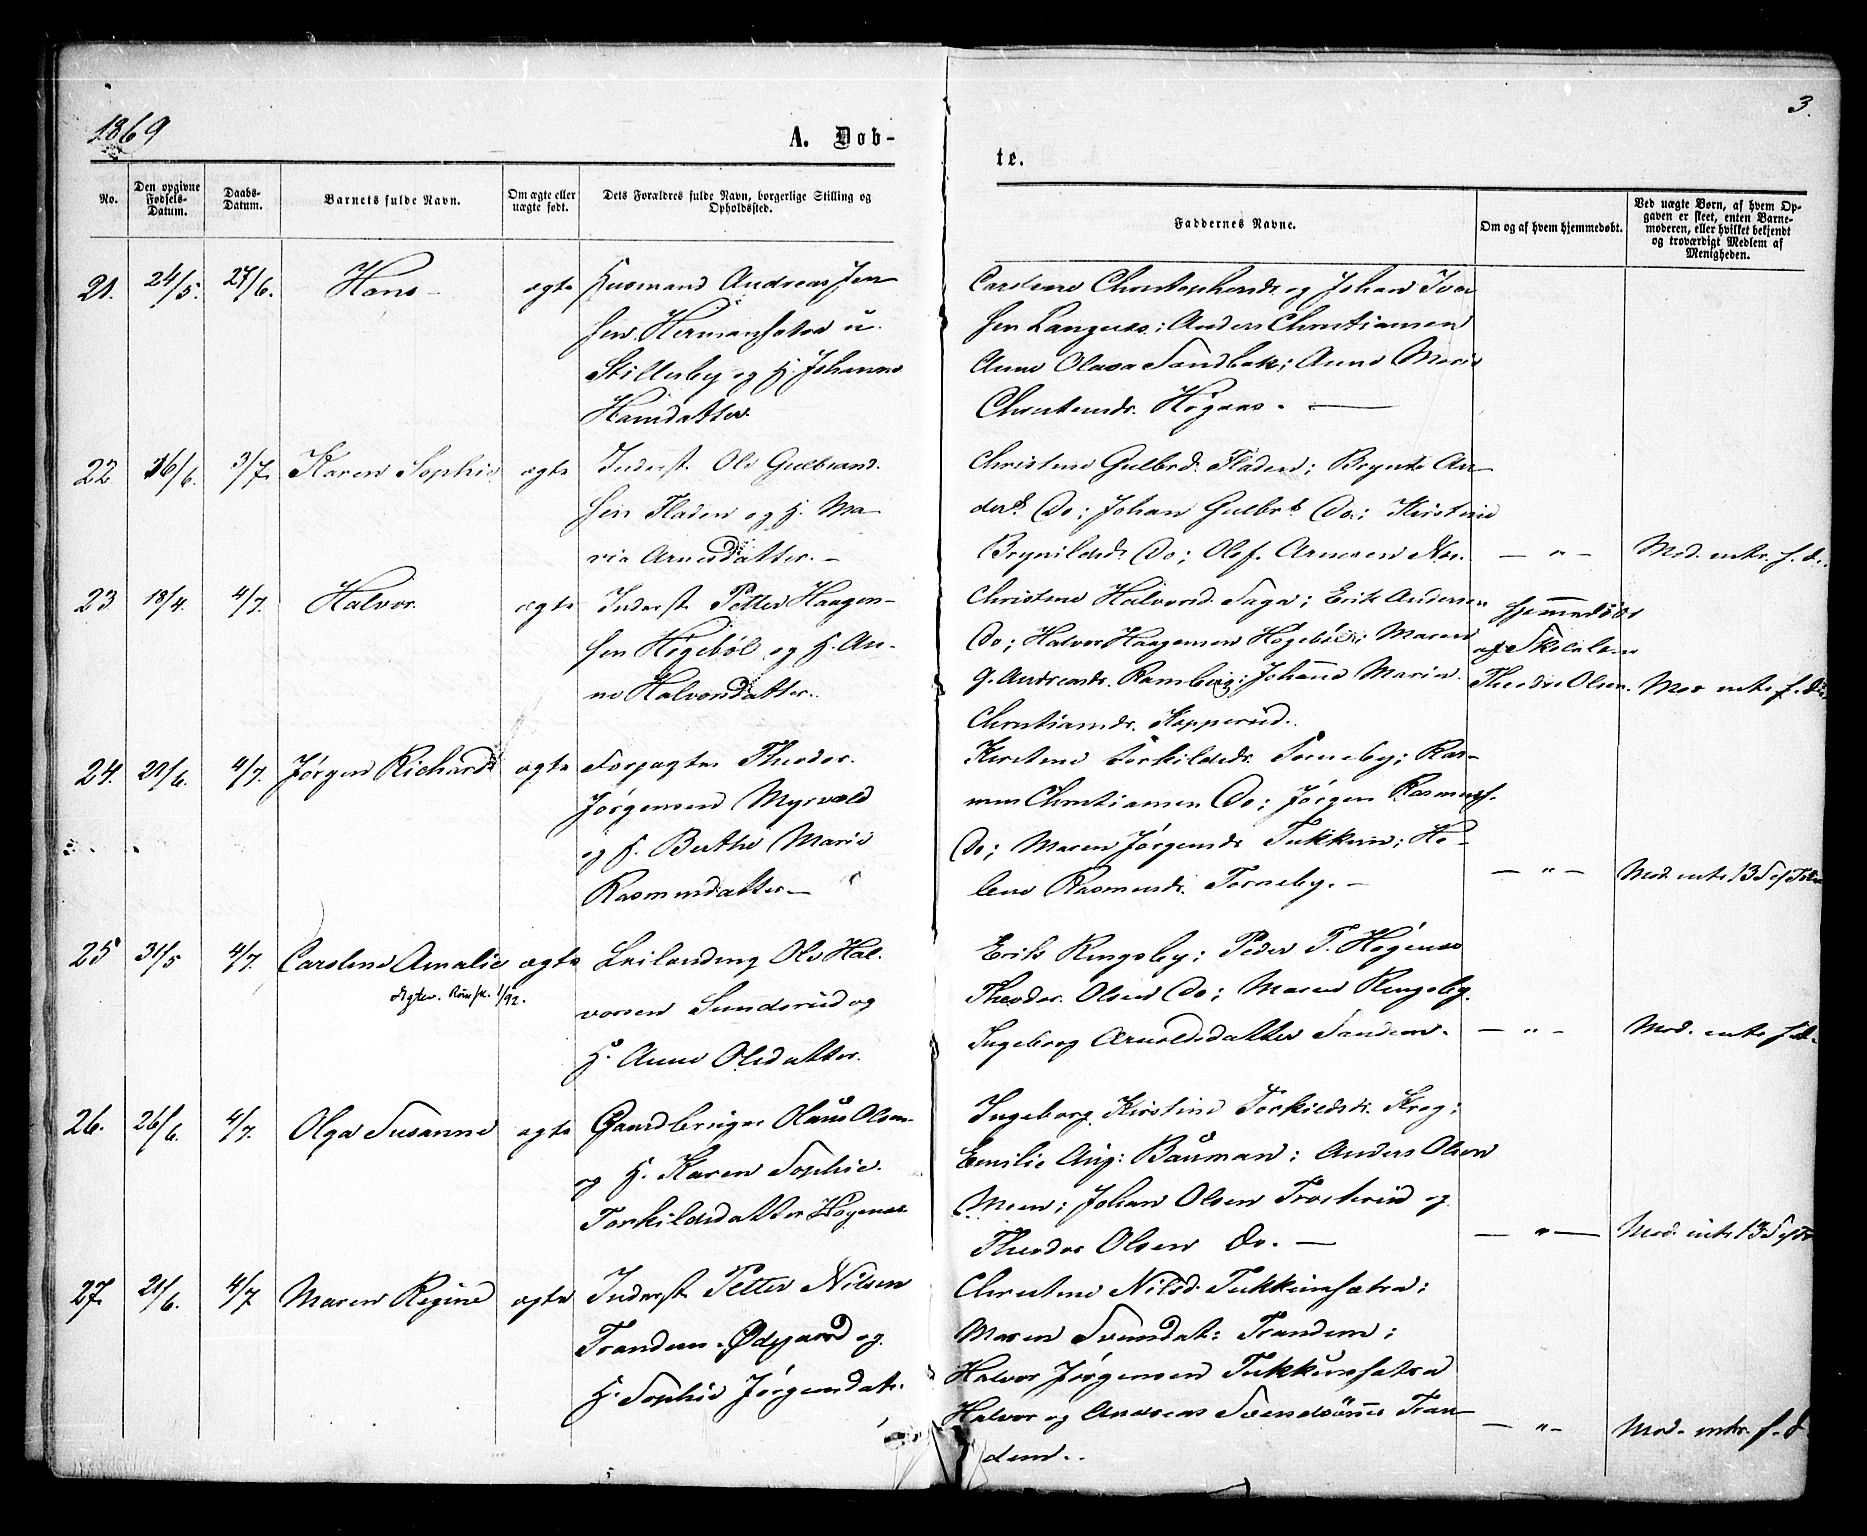 1869
3.
A. Døb-
te.
No.
Den opgivne Fødsels-Datum.
Daabs-Datum.
Barnets fulde Navn.
Om ægte eller uægte født.
Dets Forældres fulde Navn, borgerlige Stilling og Opholdssted.
Faddernes Navne.
Om og af hvem hjemmedøbt.
Ved uægte Børn, af hvem Op-
gaven er skeet, enten Barne-
moderen, eller hvilket bekjendt
og troværdigt Medlem af
Menigheden.
21. 24/5. 27/6. Hans ægte Husmand Andreas Jen-
sen Hermansætra u.
Skillerby og H. Johanne
Hansdatter.
Christophersd. og Johan Iver
sen Langnes; Anders Christiansen
Anne Olava Sandbak; Anne Marie
Christensd. Høgaas.
22. 16/6. 3/7. Karen Sophie ægte Inderst Ole Gulbrand-
sen Fladen og H. Ma-
rie Arnesdatter.
Christine Gulbrd. Fladen; Brynte An-
dersd. Do; Johan Gulbr. Do; Kirstine
Brynildsd. Do; Olof Arnesen
— " — Mod. intr. f. d.
23 18/4. 4/7. Halvor. ægte Inderst Petter Haagen-
sen Høgebøl og H. An-
ne Halvorsdatter.
Christine Halvorsd. Saga; Erik Andersen
Do; Halvor Haagensen Høgebøl; Maren
G. Andreasd. Ramberg; Johanne Marie
Christiansd. Kopperud.
Hjemmedøbt
af Skolelærer
Theodor Olsen. Mod. intr. f. d.
24. 20/6. 4/7. Jørgen Richard ægte Forpagter Theodor
Jørgensen Myrvold
og H. Berthe Marie
Rasmusdatter
Kirstine Torkildsd. Torneby; Ras-
mus Christiansen Do; Jørgen Rasmuss.
Do; Maren Jørgensd. Tukkun; He-
lene Rasmusd. Torneby.
— " — Mod. intr. 13 S. e. Tr.
25 31/5 4/7. Caroline Amalie ægte Leilending Ole Hal-
vorsen Sunderud og
H. Anne Olsdatter.
1/92.
Erik Ringsby; Peder T. Høgenæs
Theodor Olsen Do; Maren Ringsby.
Ingeborg Arnoldsdatter Sandem.
— " — Mod. intr. f. d.
26. 26/6. 4/7. Olga Susanne ægte Gaardbruger Olaus Olsen
og H. Karen Sophie
Torkildsdatter Høgenæs.
Ingeborg Kirstine Torkildsd. Krog;
Emilie Aug: Bauman; Anders Olsen
Moen; Johan Olsen Trosterud og
Theodor Olsen Do. —
— " — Mod. intr. 13 S. e. Tr.
27. 21/6. 4/7 Maren Regine ægte Inderst Petter Nilsen
Trandem Ødegaard og
H. Sophie Jørgensdat.
Christine Nilsd. Tukkunsætra;
Maren Svensdat: Trandem;
Halvor Jørgensen Tukkunsætra
Halvor og Andreas Svendsønner Tran-
dem.
— " — Mod. intr. f. d.